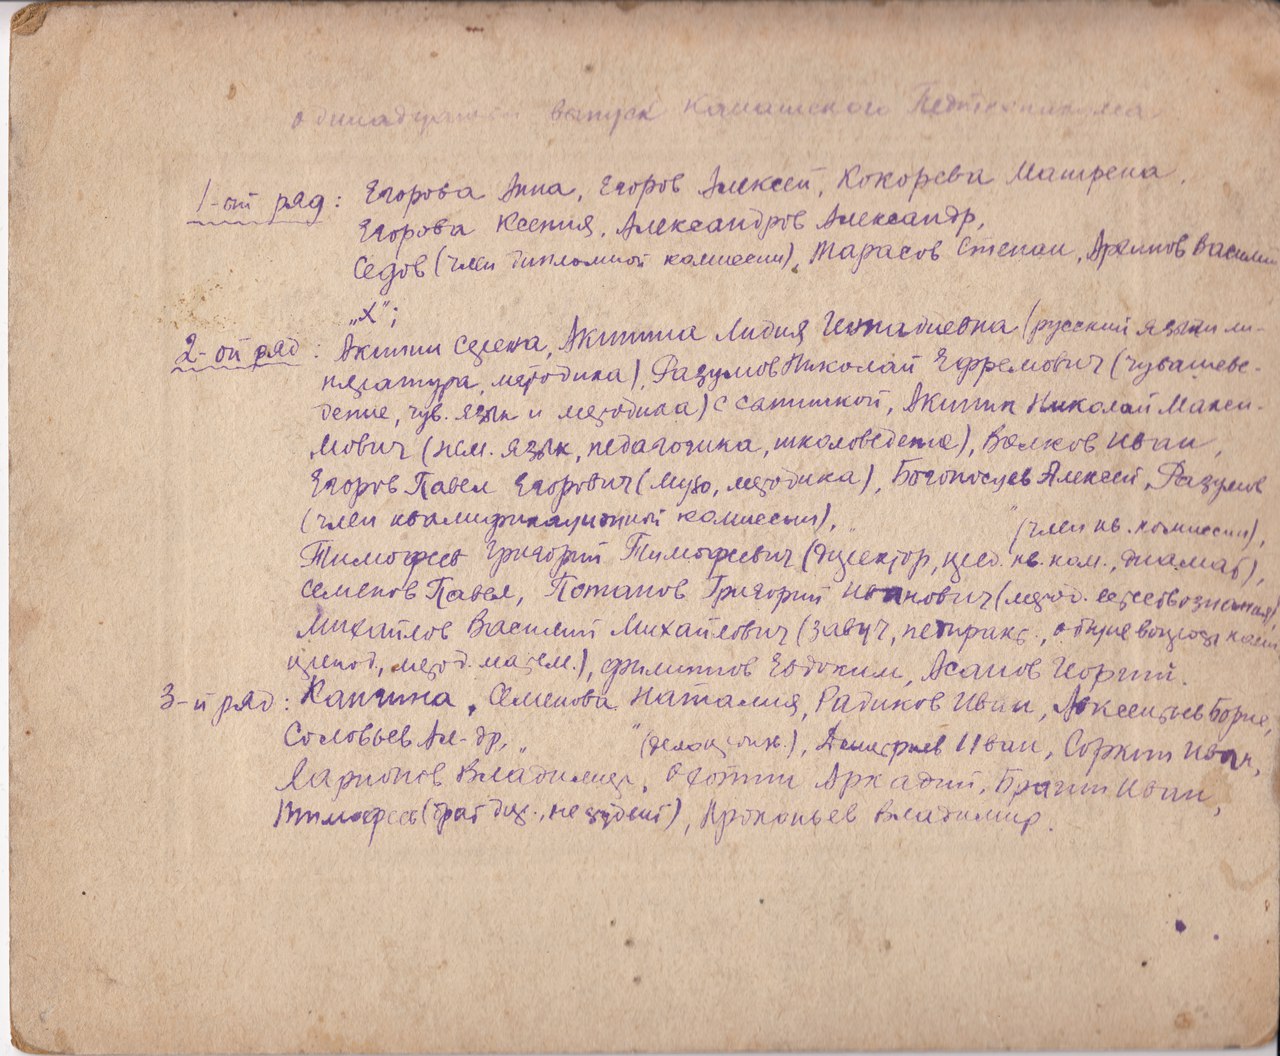 одинадцатый выпуск Канашского Педтехникума
1-ый ряд: Егорова Анна, Егоров Алексей, Кокорева Матрена,
Егорова Ксения, Александров Александр,
Седов (член дипломной комиссии), Тарасов Степан, Архипов Василий
„X";
2-ой ряд: Акитин Акитина Лидия Геннадиевна (русский язык и ли-
тература, методика), Разумов Николай Ефремович (чувашеве-
дение, чув. язык и методика) с Акитин Николай Макси-
мович (нем. язык, педагогика, школоведение), Волков Иван,
Егоров Павел Егорович (музо, методика), Богоносцев Алексей, Разумов
(член квалификационной комиссии), „ " (член кв. комиссии),
Тимофеев Григорий Тимофеевич (директор, пред. кв. ком., диамат),
Семенов Павел, Потапов Григорий Иванович (метод. естествознания),
Михайлов Василий Михайлович (завуч, педпракт.,
метод. матем.), Филиппов Евдоким, Асанов Георгий.
3-й ряд: Капчина, Семенова Наталия, Радиков Иван, Авксентьев Борис,
Соловьев Ал-др, „ " Дмитриев Иван, Соркин Иван,
Ларионов Владимир, Охотин Аркадий, Брагин Иван,
Тимофеев (брат дир., не студент), Прокопьев Владимир.